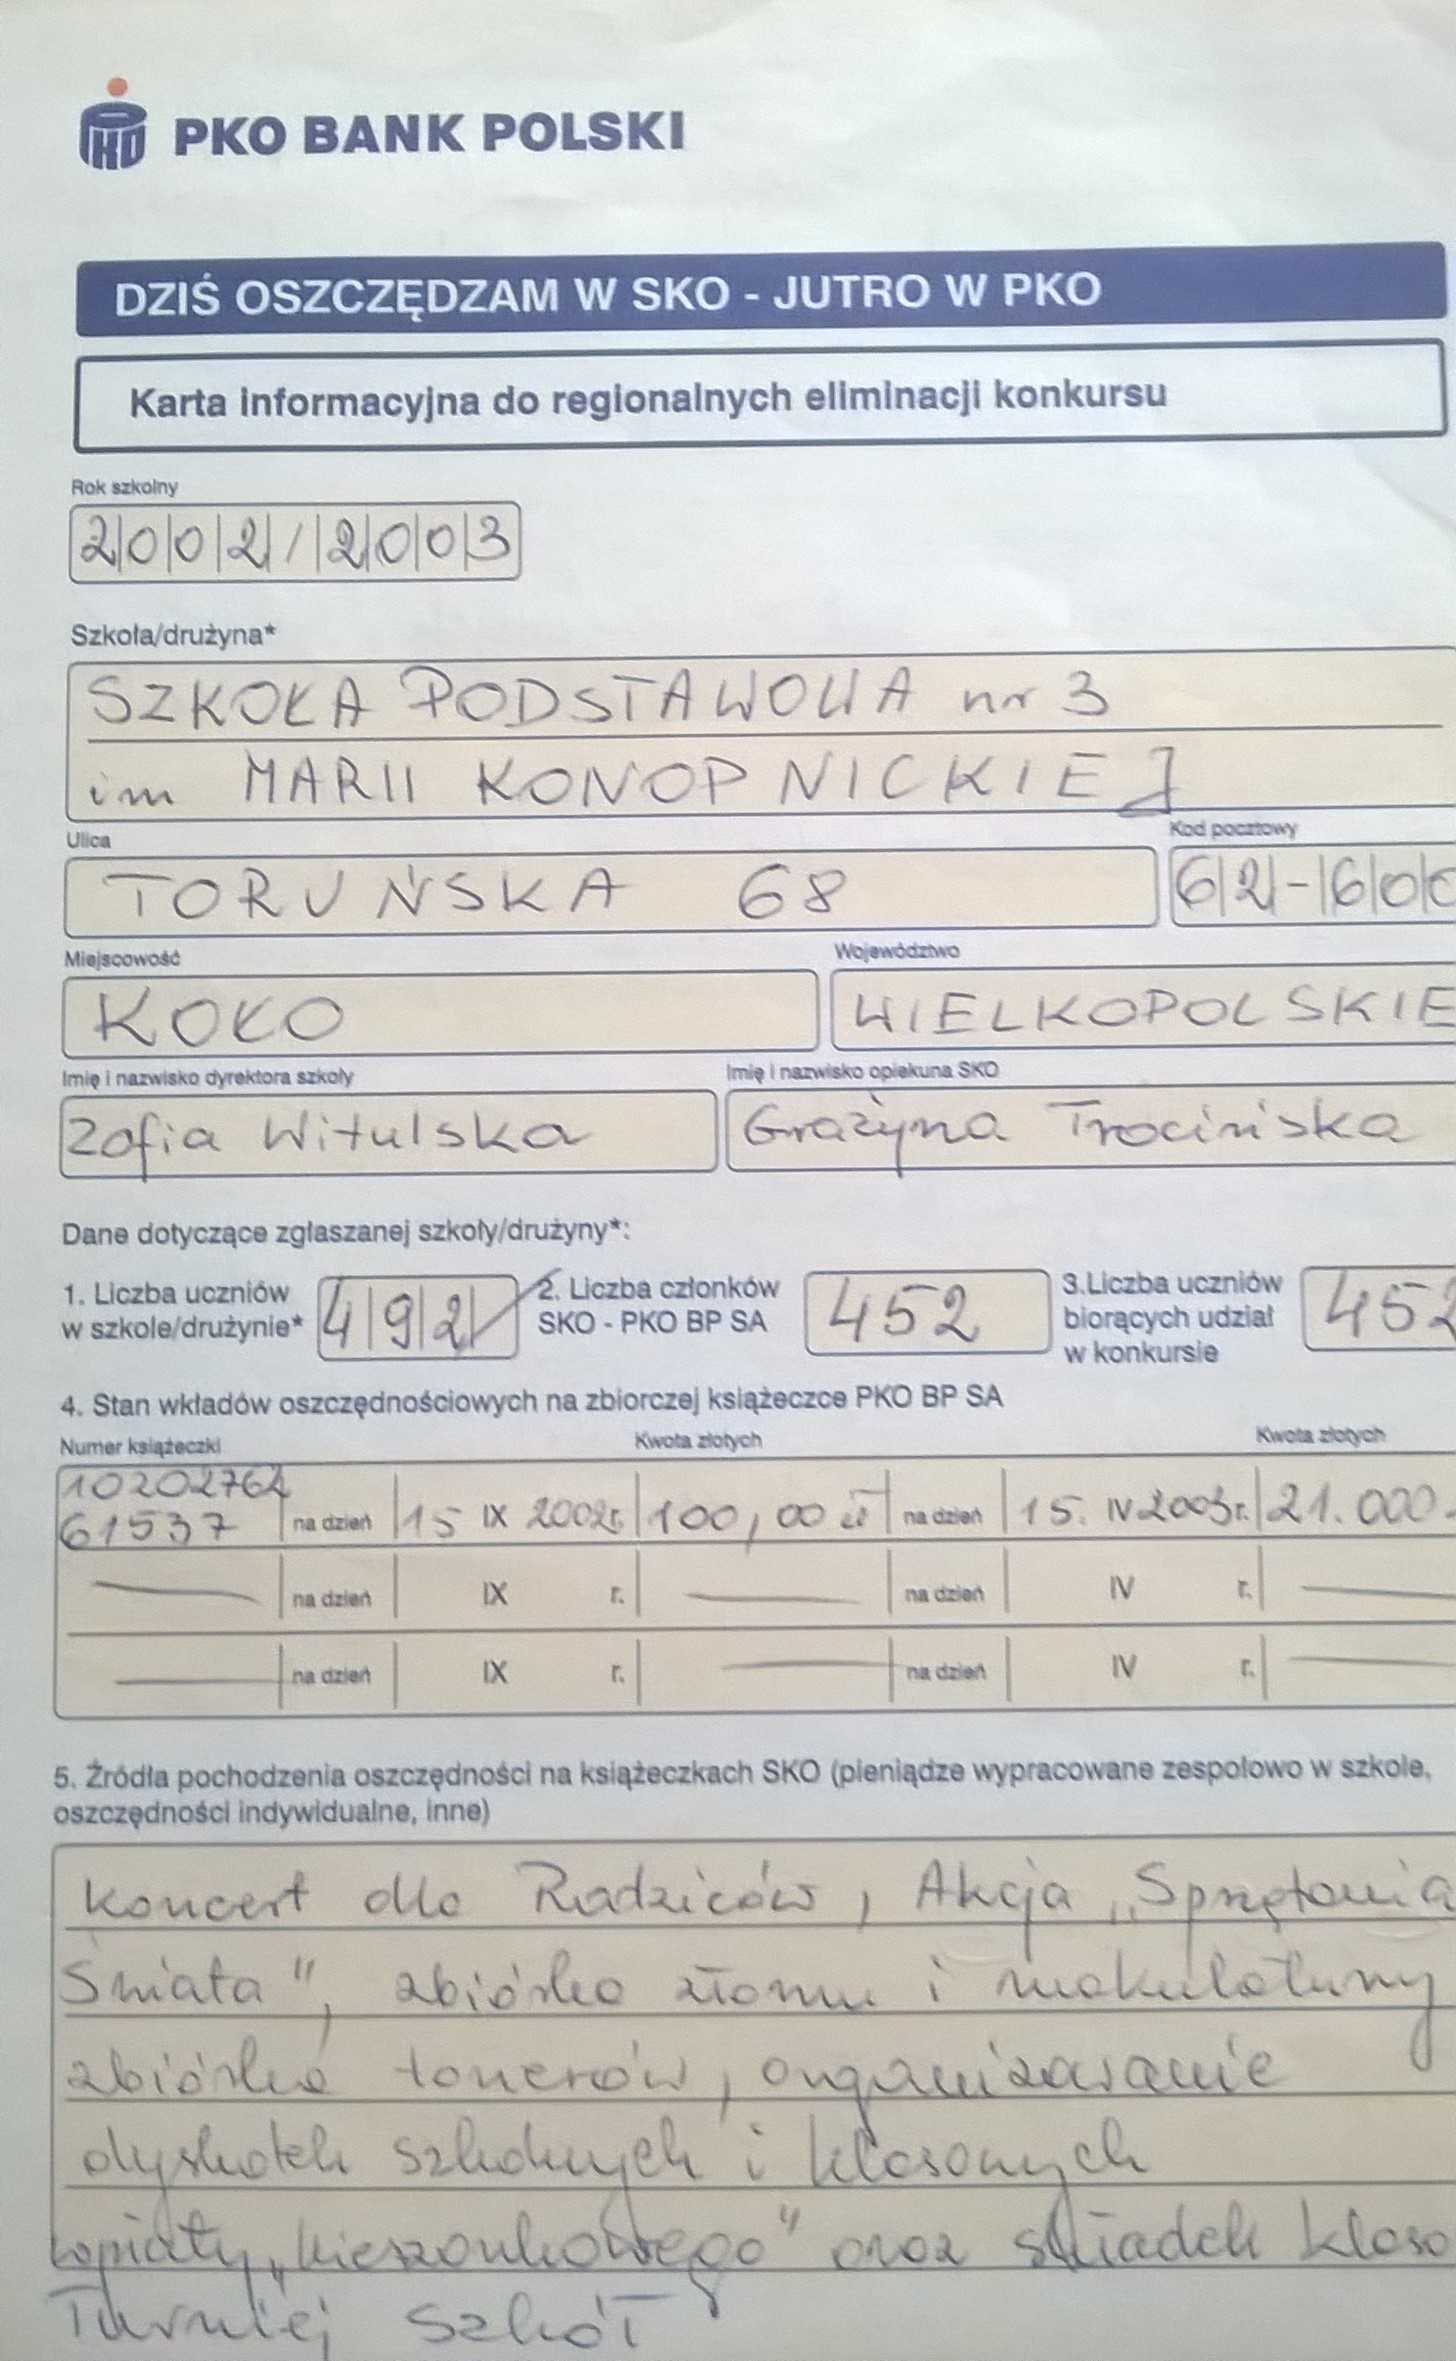 PKO BANK POLSKI
DZIŚ OSZCZĘDZAM W SKO - JUTRO W PKO
Karta informacyjna do regionalnych eliminacji konkursu
Rok szkolny
2002/2003
Szkoła/drużyna*
SZKOŁA PODSTAWOWA nr 3
im MARII KONOPNICKIEJ
Ulica Kod pocztowy
TORUŃSKA 68 62-600
Miejscowość Województwo
KOŁO WIELKOPOLSKIE
Imię i nazwisko dyrektora szkoły Imię i nazwisko opiekuna SKO
Zofia Witulska Grażyna Trocińska
Dane dotyczące zgłaszanej szkoły/drużyny*:
1. Liczba uczniów w szkole/drużynie* 492 2. Liczba członków SKO - PKO BP SA 452 3.Liczba uczniów biorących udział w konkursie 452
4. Stan wkładów oszczędnościowych na zbiorczej książeczce PKO BP SA
Numer książeczki Kwota złotych Kwota złotych
10202762
61537 na dzień 15 IX 2002r. 100,00 zł na dzień 15. IV 2003r. 21.000
na dzień IX r. na dzień IV r.
na dzień IX r. na dzień IV r.
5. Źródła pochodzenia oszczędności na książeczkach SKO (pieniądze wypracowane zespołowo w szkole,
oszczędności indywidualne, inne)
Koncert dla Rodziców, Akcja „Sprzątania
Świata", zbiórka złomu i makulatury
zbiórka tonerów, organizowanie
dyskotek szkolnych i klasowych
wpłaty „kieszonkowego" oraz składek klaso
Turniej Szkół